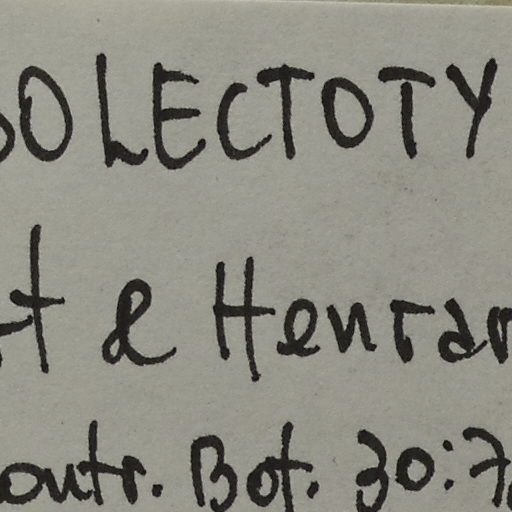 OLECTOTY
t & Henrar
ontr. Bot. 30:7